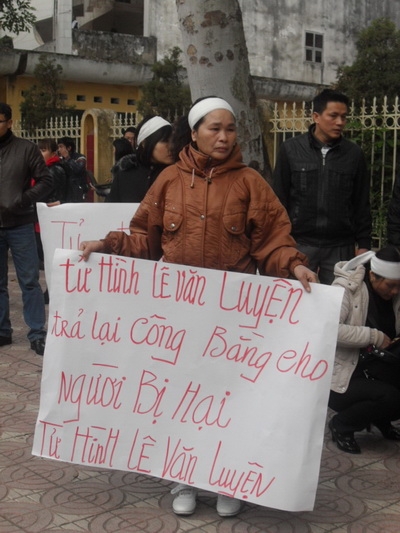 Tử
Tử Hình LÊ Văn Luyện
trả lại công Bằng cho
NGƯời Bị Hại
Tử Hình LÊ Văn Luyện